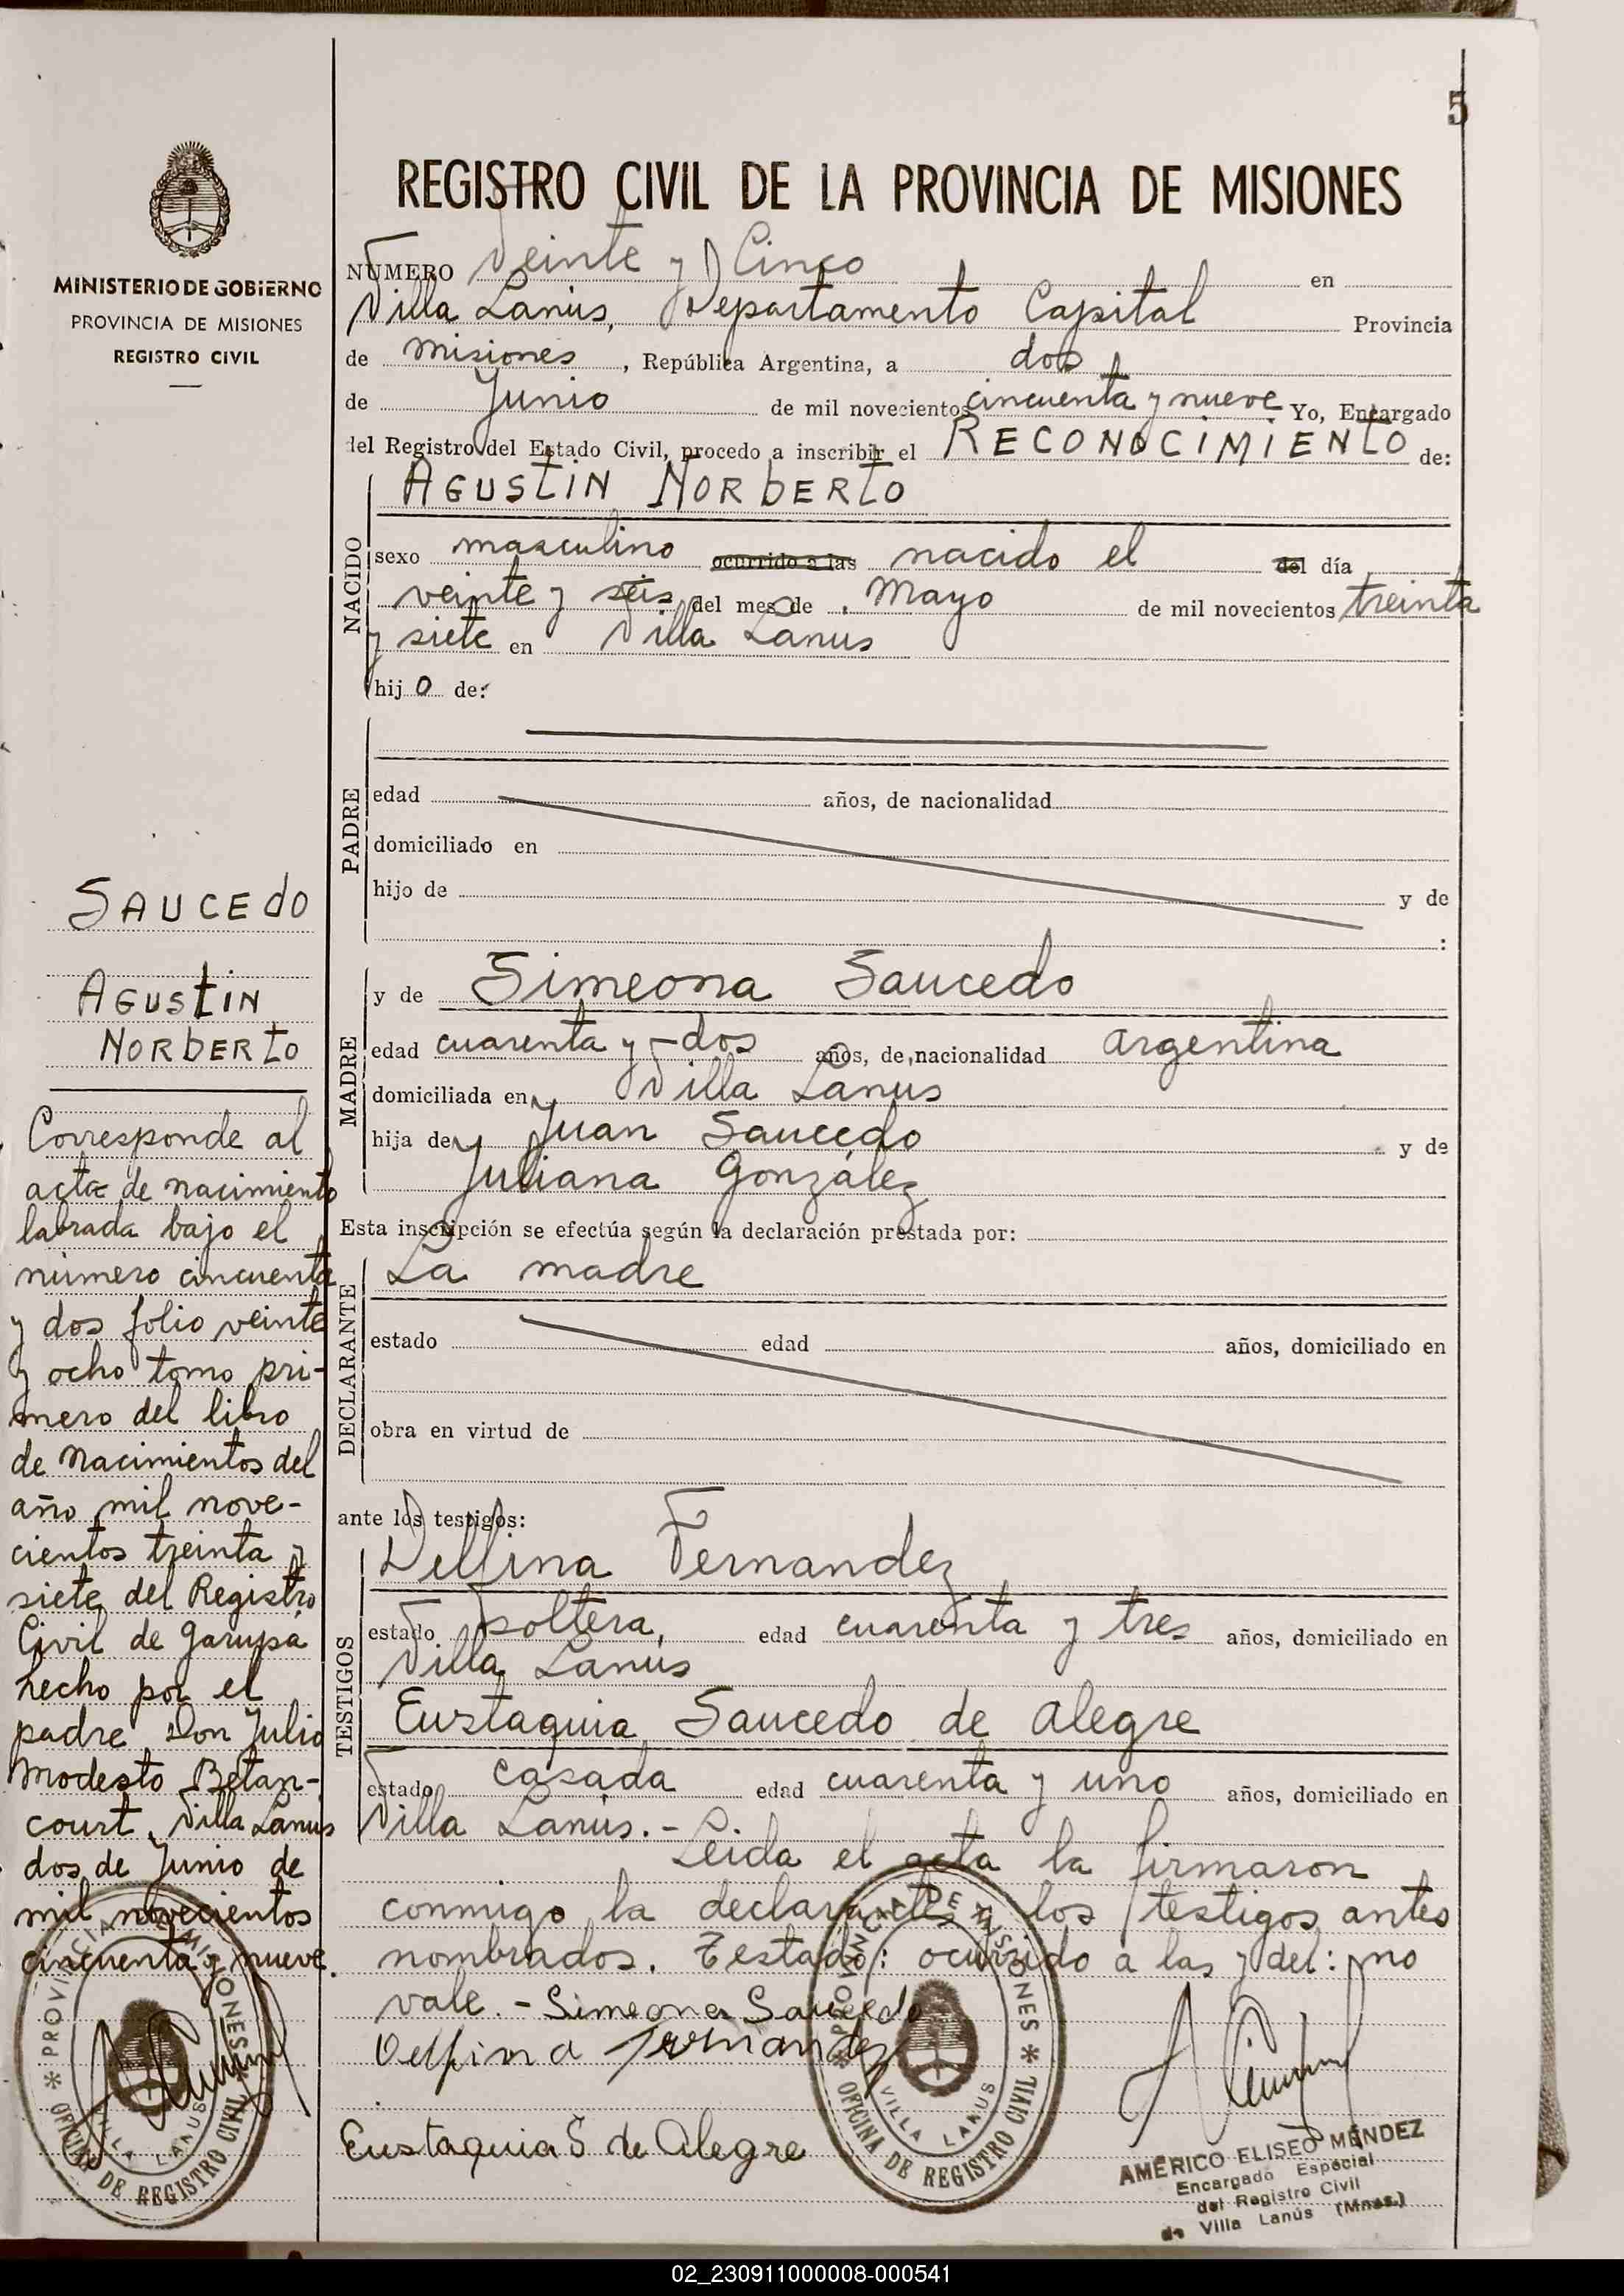 5
MINISTERIO DE GOBIERNO
PROVINCIA DE MISIONES
REGISTRO CIVIL
REGISTRO CIVIL DE LA PROVINCIA DE MISIONES
NUMERO Veinte y Cinco en
Villa Lanús, Departamento Capital Provincia
de Misiones, República Argentina, a dos
de Junio de mil novecientos cincuenta y nueve Yo, Encargado
del Registro del Estado Civil, procedo a inscribir el RECONOCIMIENTO de:
NACIDO
AGUSTIN NORBERTO
sexo masculino ocurrido a las nacido el del día
veinte y seis del mes de Mayo de mil novecientos treinta
y siete en Villa Lanus
hijo de:
PADRE
edad años, de nacionalidad
domiciliado en
hijo de y de
:
MADRE
y de Simeona Saucedo
edad cuarenta y dos años, de nacionalidad argentina
domiciliada en Villa Lanus
hija de Juan Saucedo y de
Juliana González
Esta inscripción se efectúa según la declaración prestada por:
DECLARANTE
La madre
estado edad años, domiciliado en
obra en virtud de
ante los testigos:
TESTIGOS
Delfina Fernandez
estado soltera, edad cuarenta y tres años, domiciliado en
Villa Lanus
Eustaquia Saucedo de Alegre
estado casada edad cuarenta y uno años, domiciliado en
Villa Lanús.- Leida el acta la firmaron
conmigo la declarante y los testigos antes
nombrados. Testado: ocurrido a las y del: no
vale.- Simeona Saucedo
Delfina Fernandez
Eustaquia S de Alegre
AMÉRICO ELISEO MÉNDEZ
Encargado Especial
del Registro Civil
de Villa Lanús (Mnes.)
PROVINCIA DE MISIONES * OFICINA DE REGISTRO CIVIL *
VILLA LANUS
SAUCEDO
AGUSTIN
NORBERTO
Corresponde al
acta de nacimiento
labrada bajo el
número cincuenta
y dos folio veinte
y ocho tomo pri-
mero del libro
de Nacimientos del
año mil nove-
cientos treinta y
siete del Registro
Civil de Garupa
hecho por el
padre Don Julio
Modesto Betan-
court. Villa Lanus
dos de Junio de
mil novecientos
cincuenta y nueve.
PROVINCIA DE MISIONES * OFICINA DE REGISTRO CIVIL *
VILLA LANUS
02_230911000008-000541